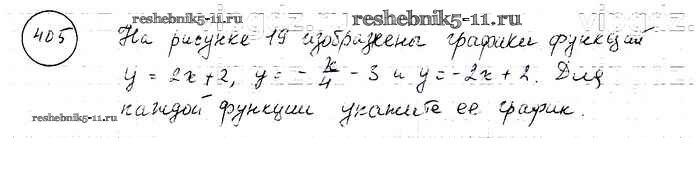 reshebnik5-11.ru
reshebnik5-11.ru
405 На рисунке 19 изображены графики функций
y = 2x+2, y = - x/4 - 3 и y = -2x + 2. Для
каждой функции укажите ее график.
reshebnik5-11.ru